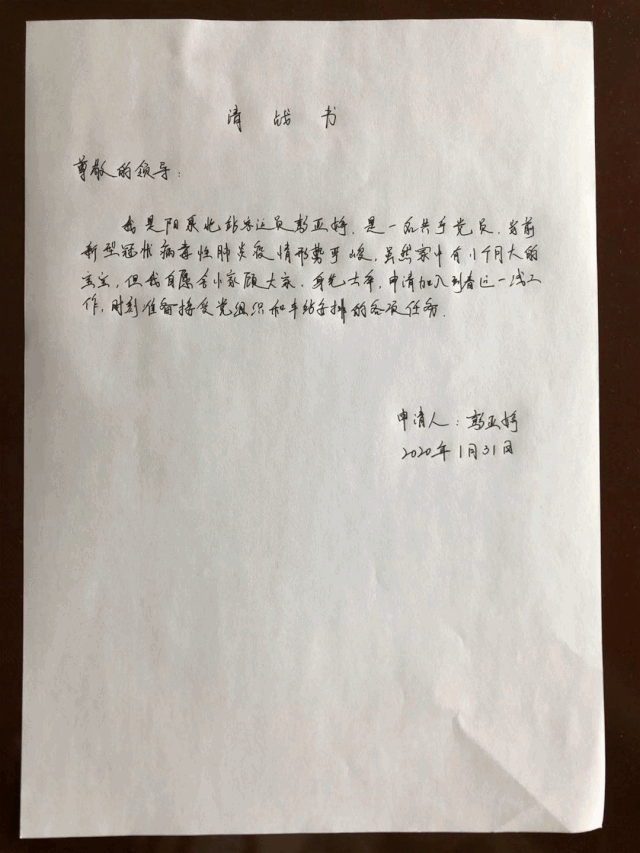 请战书
尊敬的领导:
我是阳泉北站客运员郭亚婷,是一名共产党员,当前
新型冠状病毒性肺炎疫情形势严峻,虽然家中有11个月大的
宝宝,但我自愿舍小家顾大家,身先士卒,申请加入到春运一线工
作,时刻准备接受党组织和车站安排的各项任务.
申请人:郭亚婷
2020年1月31日